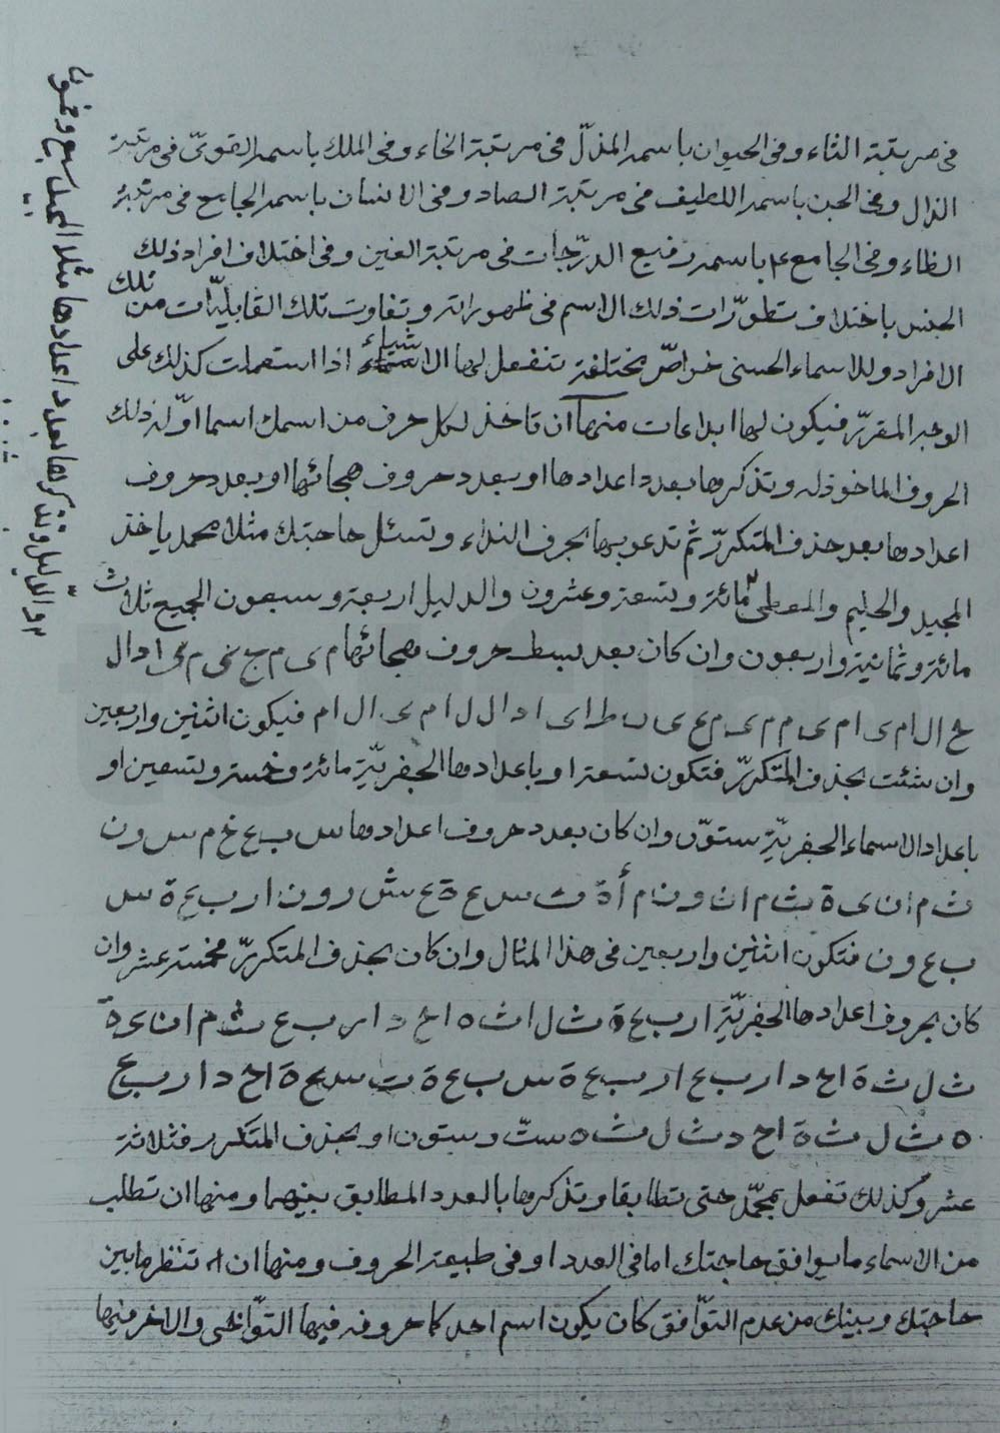 في مرتبة الثاء وفي الحيوان باسمه المذلّ في مرتبة الخاء وفي الملك باسمه القويّ في مرتبة
الذال وفي الجن باسمه اللطيف في مرتبة الصاد وفي الانسان باسمه الجامع في مرتبة
الظاء وفي الجامع ع باسمه رفيع الدرّجات في مرتبة الغين وفي اختلاف افراد ذلك
الجنس باختلاف تطوّرات ذلك الاسم في ظهوراته وتفاوت تلك القابليّات من تلك
الافراد وللاسماء الحسنى خواصّ مختلفة تنفعل لها الاشياء اذا استعملت كذلك على
الوجه المقرّر فيكون لها ابداعات منها ان تاخذ لكل حرف من اسمك اسما اوّله ذلك
الحروف الماخوذله وتذكرها بعدد اعدادها او بعدد حروف هجائها او بعدد حروف
اعدادها بعد حذف المتكررّ ثم تدعو بها بحرف النداء وتسئل حاجتك مثلا محمد ياخذ
المجيد والحليم والمعطي مائة وتسعة وعشرون والدليل اربعة وسبعون الجميع ثلاث
مائة وثمانية واربعون وان كان بعد بسط حروف هجائها م ي م ج ي م ي ا دال
ح ال ام ي ا م ي م م ي م ع ي ن ط ا ي ا د ال ل ا م ي ال ام فيكون اثنين واربعين
وان شئت بحذف المتكررّ فتكون تسعة او باعدادها الجفريّة مائة وخمسة وتسعين او
باعداد الاسماء الجفريّة ستوّن وان كان بعدد حروف اعدادها س ب ع خ م س و ن
ث م ا ن ي ة ث م ا ن و ن م أ ة ت س ع ة ع ش ر و ن ا ر ب ع ة س
ب ع و ن فتكون اثنين واربعين في هذا المثال وان كان بحذف المتكررّ فخمسة عشر وان
كان بحروف اعدادها الجفريّة ا ر ب ع ة ث ل ا ث ه ا ح د ا ر ب ع ث م ا ن ي ة
ث ل ث ة ا ح د ا ر ب ع ا ر ب ع ة س ب ع ة ت س ع ة ا ح د ا ر ب ع
ه ث ل ث ة ا ح د ث ل ث ه ستّ وستون او بحذف المتكرر فثلاثة
عشر وكذلك تفعل بمحمّد حتى تطابقا وتذكرها بالعدد المطابق بينهما ومنها ان تطلب
من الاسماء ما يوافق حاجتك اما في العدد او في طبيعة الحروف ومنها ان تنظر ما بين
حاجتك وبينك من عدم التوّافق كان يكون اسم احد كما حروفه فيها التوّاخي والاخر فيها
والدّليل وتذكرها بعدد اعدادها مثلا المجيد سبع وخمسون